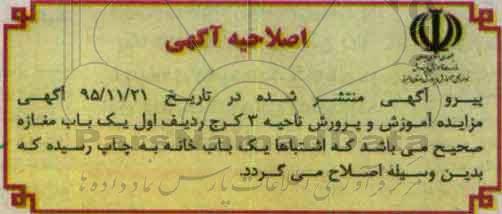 اصلاحیه آگهی
پیرو آگهی منتشر شده در تاریخ ۹۵/۱۱/۲۱ آگهی
مزایده آموزش و پرورش ناحیه ۳ کرج ردیف اول یک باب مغازه
صحیح می باشد که اشتباها یک باب خانه به چاپ رسیده که
بدین وسیله اصلاح می گردد.